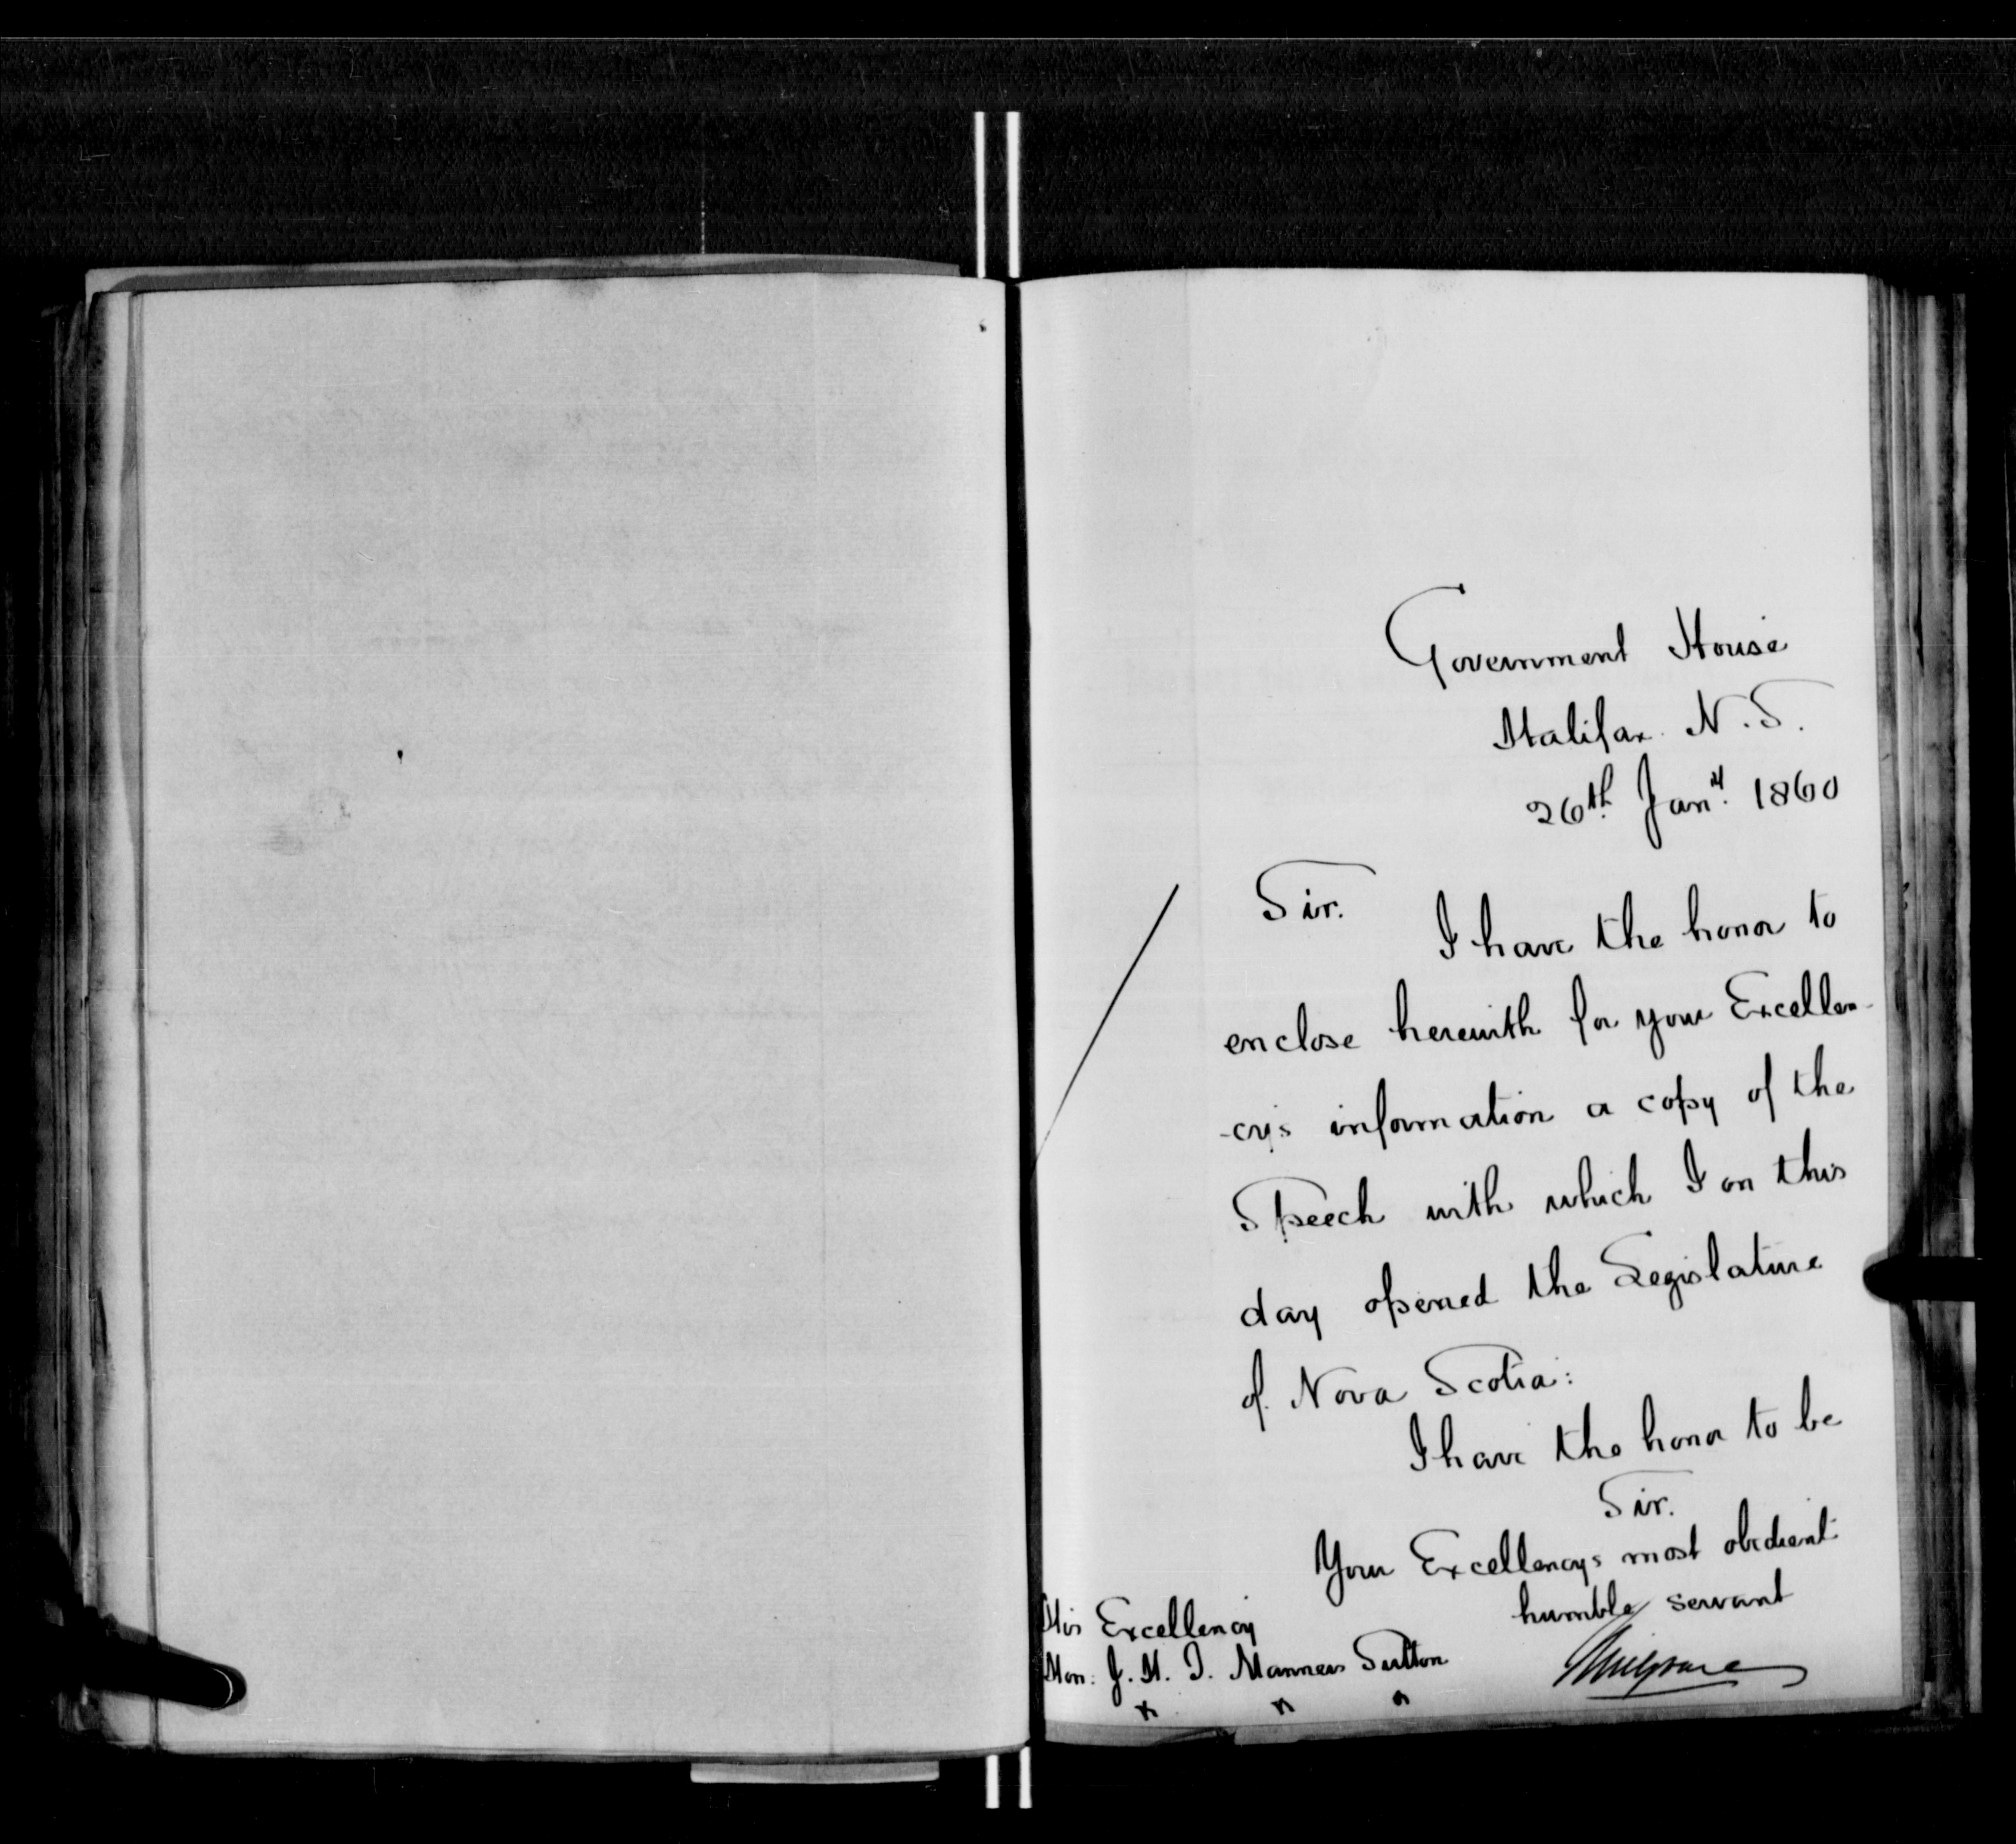 Government House
Halifax. N.S.
26th Jany. 1860
Sir.
I have the honor to
enclose herewith for your Excellen-
-cy's information a copy of the
Speech with which I on this
day opened the Legislature
of Nova Scotia:
I have the honor to be
Sir.
Your Excellency's most obedient
humble servant
Mulgrave
His Excellency
Hon: J. H. T. Manners Sutton